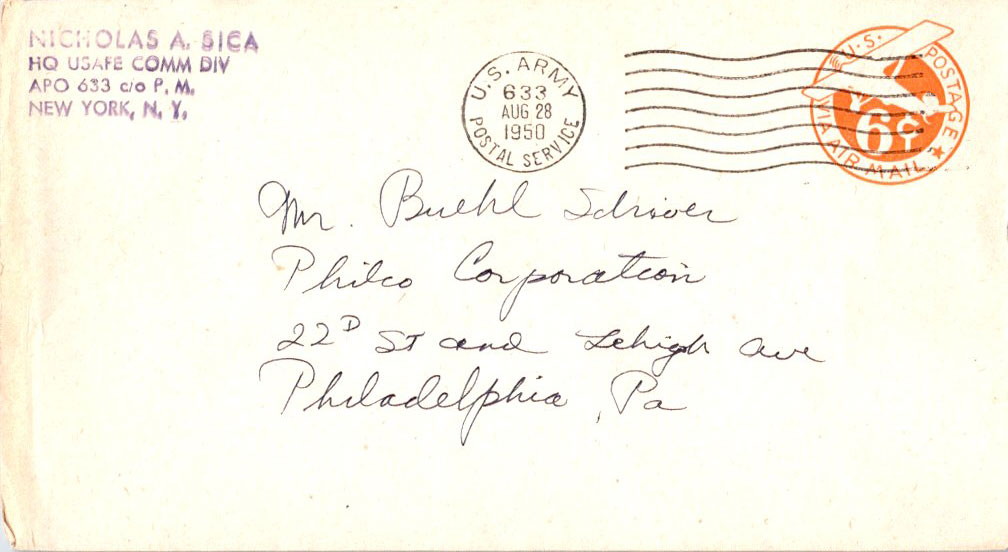 NICHOLAS A. SICA
HQ USAFE COMM DIV
APO 633 c/o P. M.
NEW YORK, N. Y.
U.S. ARMY
633
AUG 28
1950
POSTAL SERVICE
U.S. POSTAGE
6¢
VIA AIR MAIL
Mr. Buehl Schiver
Philco Corporation
22D St and Lehigh Ave
Philadelphia, Pa